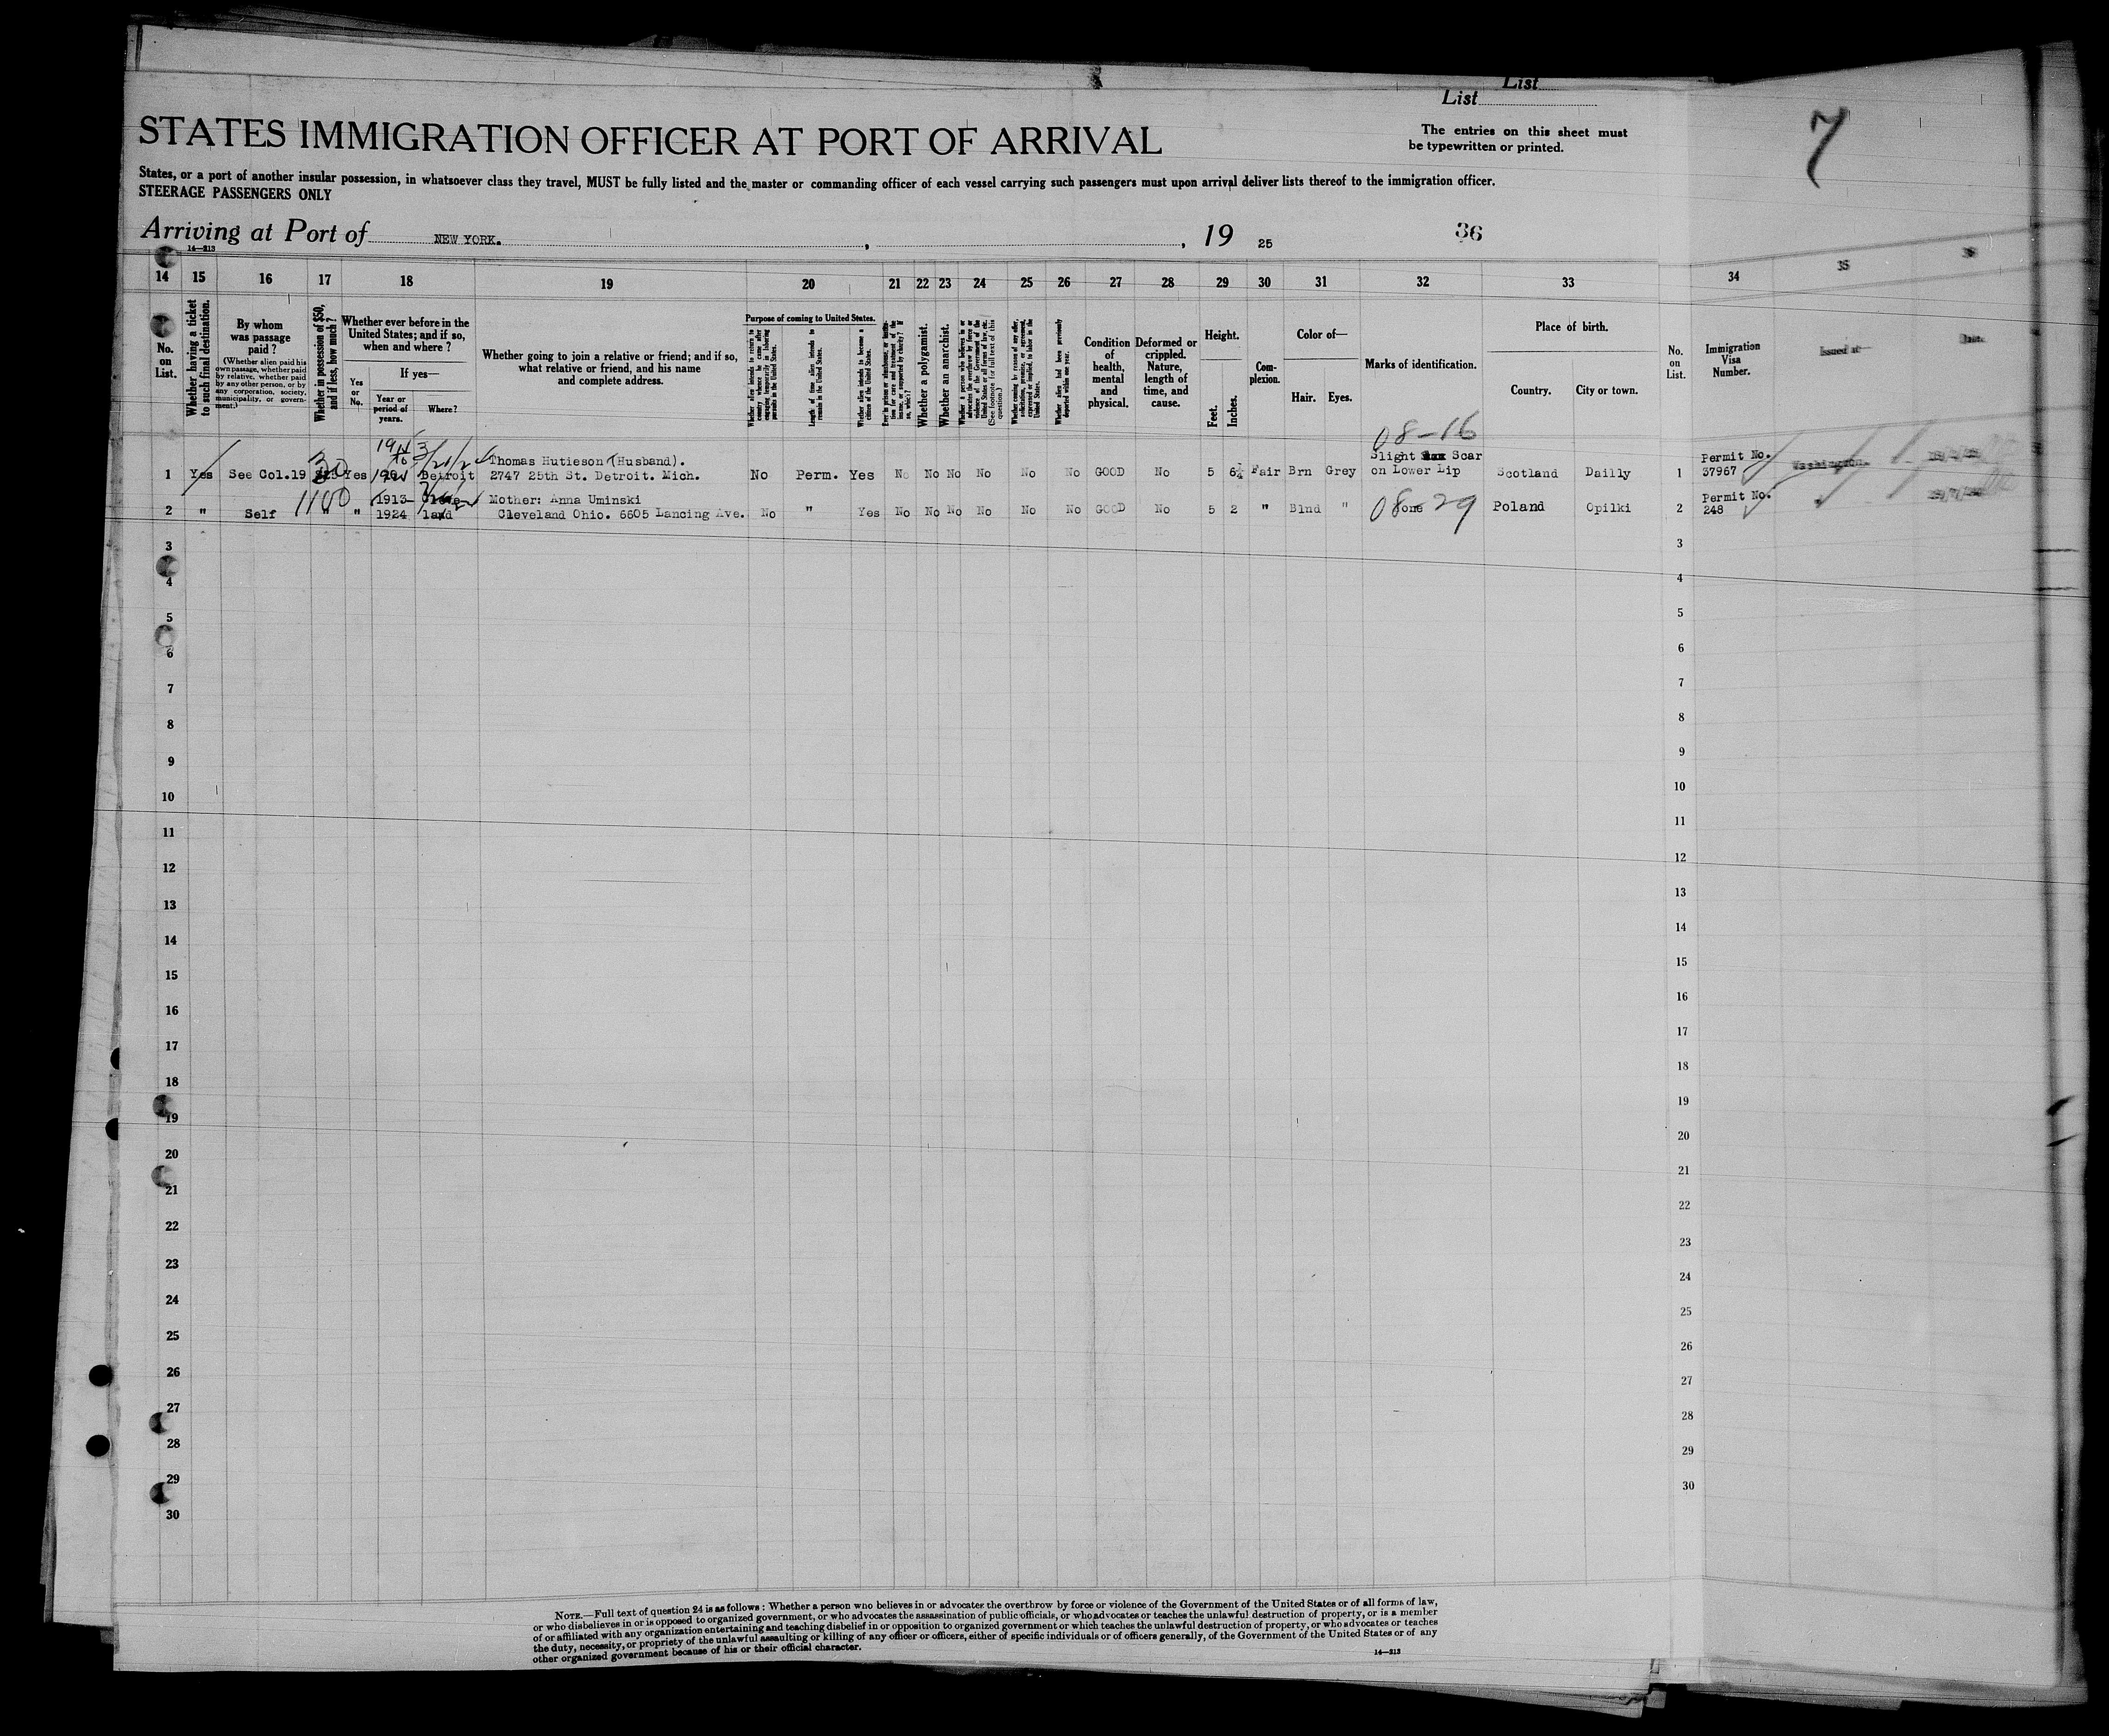 List
List
The entries on this sheet must
be typewritten or printed.
7
STATES IMMIGRATION OFFICER AT PORT OF ARRIVAL
States, or a port of another insular possession, in whatsoever class they travel, MUST be fully listed and the master or commanding officer of each vessel carrying such passengers must upon arrival deliver lists thereof to the immigration officer.
STEERAGE PASSENGERS ONLY
Arriving at Port of NEW YORK. , , 19 25 36
14—213
14 15 16 17 18 19 20 21 22 23 24 25 26 27 28 29 30 31 32 33 34 35 36
No. on List.
Whether having a ticket to such final destination.
By whom was passage paid?
(Whether alien paid his own passage, whether paid by relative, whether paid by any other person, or by any corporation, society, municipality, or government.)
Whether in possession of $50, and if less, how much?
Whether ever before in the United States; and if so, when and where?
Yes or No.
If yes—
Year or period of years.
Where?
Whether going to join a relative or friend; and if so, what relative or friend, and his name and complete address.
Purpose of coming to United States.
Whether alien intends to return to country whence he came after engaging temporarily in laboring pursuits in the United States.
Length of time alien intends to remain in the United States.
Whether alien intends to become a citizen of the United States.
Whether a polygamist.
Whether an anarchist.
Whether coming by reason of any offer, solicitation, promise, or agreement, expressed or implied, to labor in the United States.
Whether alien had been previously deported within one year.
Condition of health, mental and physical.
Deformed or crippled. Nature, length of time, and cause.
Height.
Feet. Inches.
Complexion.
Color of—
Hair. Eyes.
Marks of identification.
Place of birth.
Country. City or town.
No. on List.
Immigration Visa Number.
Issued at—
Date.
08-16
1 Yes See Col.19 30 Yes Detroit Thomas Hutieson (Husband). 2747 25th St. Detroit. Mich. No Perm. Yes No No No No No No GOOD No 5 6¼ Fair Brn Grey Slight Scar on Lower Lip Scotland Dailly 1 Permit No. 37967 Washington.
2 " Self 1100 " " 1913- 1924 Cleveland Mother: Anna Uminski Cleveland Ohio. 6605 Lancing Ave. No " Yes No No No No No No GOOD No 5 2 " Blnd " 08-29 Poland Opilki 2 Permit No. 248 "
3 3
4 4
5 5
6 6
7 7
8 8
9 9
10 10
11 11
12 12
13 13
14 14
15 15
16 16
17 17
18 18
19 19
20 20
21 21
22 22
23 23
24 24
25 25
26 26
27 27
28 28
29 29
30 30
NOTE.—Full text of question 24 is as follows: Whether a person who believes in or advocates the overthrow by force or violence of the Government of the United States or of all forms of law,
or who disbelieves in or is opposed to organized government, or who advocates the assassination of public officials, or who advocates or teaches the unlawful destruction of property, or is a member
of or affiliated with any organization entertaining and teaching disbelief in or opposition to organized government or which teaches the unlawful destruction of property, or who advocates or teaches
the duty, necessity, or propriety of the unlawful assaulting or killing of any officer or officers, either of specific individuals or of officers generally, of the Government of the United States or of any
other organized government because of his or their official character.
14—213